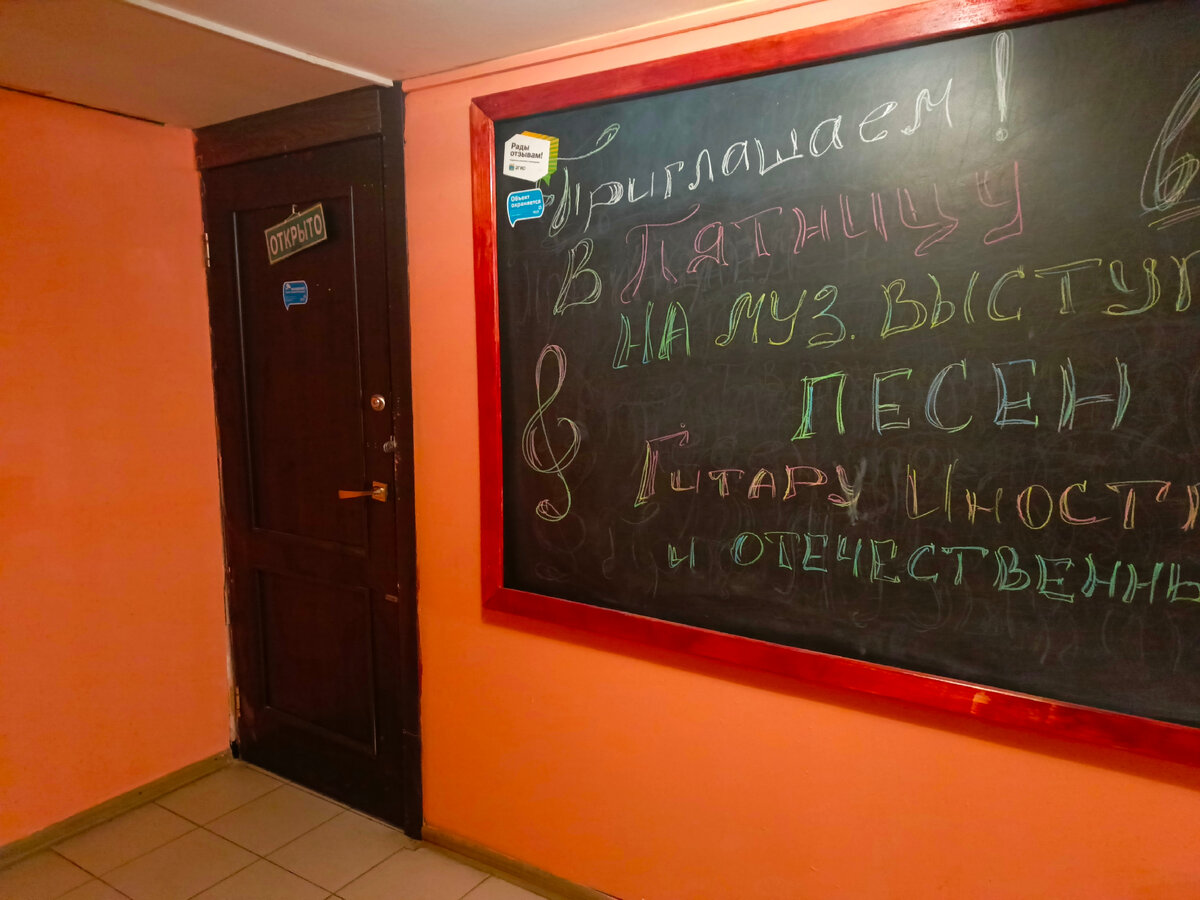 ОТКРЫТО
Рады
отзывам!
2ГИС
Объект
охраняется
Приглашаем!
В Пятницу
НА МУЗ. ВЫСТУП
ПЕСЕН
Гитару Иност
и ОТЕЧЕСТВЕННЫ